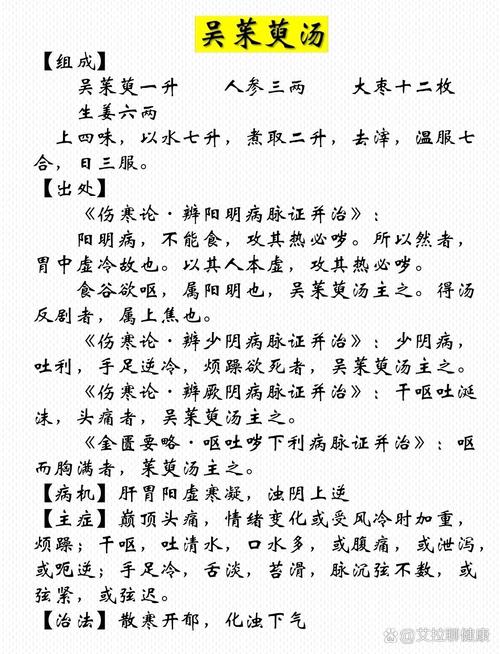 吴茱萸汤
【组成】
吴茱萸一升 人参三两 大枣十二枚
生姜六两
上四味，以水七升，煮取二升，去滓，温服七
合，日三服。
【出处】
《伤寒论·辨阳明病脉证并治》：
阳明病，不能食，攻其热必哕。所以然者，
胃中虚冷故也。以其人本虚，攻其热必哕。
食谷欲呕，属阳明也，吴茱萸汤主之。得汤
反剧者，属上焦也。
《伤寒论·辨少阴病脉证并治》：少阴病，
吐利，手足逆冷，烦躁欲死者，吴茱萸汤主之。
《伤寒论·辨厥阴病脉证并治》：干呕吐涎
沫，头痛者，吴茱萸汤主之。
《金匮要略·呕吐哕下利病脉证并治》：呕
而胸满者，茱萸汤主之。
【病机】肝胃阳虚寒凝，浊阴上逆
【主症】巅顶头痛，情绪变化或受风冷时加重，
烦躁；干呕，吐清水，口水多，或腹痛，或泄泻，
或呃逆；手足冷，舌淡，苔滑，脉沉弦不数，或
弦紧，或弦迟。
【治法】散寒开郁，化浊下气
@艾拉聊健康